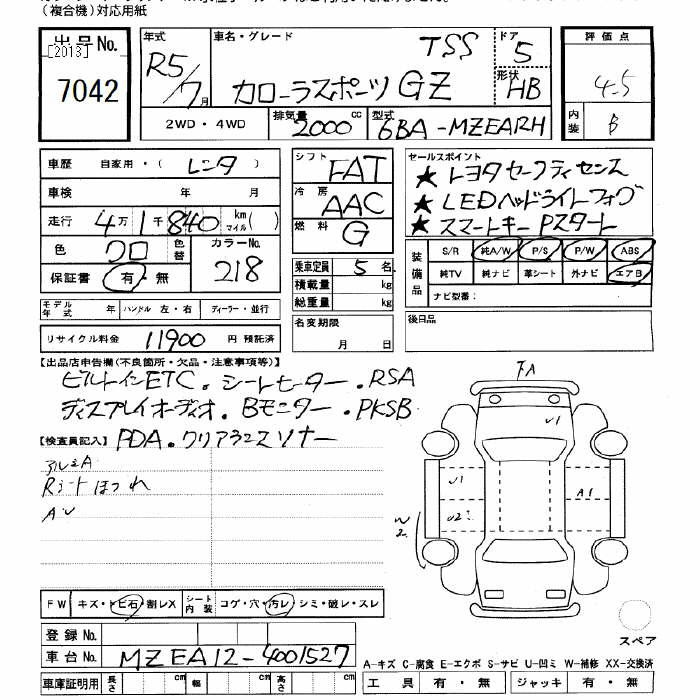 （複合機）対応用紙
出品No.
[2013]
7042
年式 R5/7月
車名・グレード TSS
カローラスポーツ GZ
ドア 5
形状 HB
評価点 4.5
内装 B
2WD・4WD
排気量 2000 cc
型式 6BA-MZEA12H
車歴 自家用・( レンタ )
車検 年 月
走行 4万1千840 km マイル( )
色 クロ 色替 カラーNo. 218
保証書 有・無
シフト FAT
冷房 AAC
燃料 G
乗車定員 5名
積載量 kg
総重量 kg
セールスポイント
★トヨタセーフティセンス
★LEDヘッドライトフォグ
★スマートキー Pスタート
装備品
S/R 純A/W P/S P/W ABS
純TV 純ナビ 革シート 外ナビ エアB
ナビ型番：
モデル年式 ハンドル 左・右 ディーラー・並行
名変期限 月 日
後日品
リサイクル料金 11900 円 預託済
【出品店申告欄(不良箇所・欠品・注意事項等)】
ビルトインETC．シートヒーター．RSA
ディスプレイオーディオ．Bモニター．PKSB
【検査員記入】PDA．クリアランスソナー
アルミA
Rシートほつれ
AU
FA
U1
U1
U2
A1
W2
FW キズ・トビ石・割レX
シート内装 コゲ・穴・汚レ・シミ・破レ・スレ
スペア
登録No.
車台No. MZEA12-4001527
A-キズ C-腐食 E-エクボ S-サビ U-凹ミ W-補修 XX-交換済
車庫証明用 長さ cm 幅 cm 高さ cm
工具 有・無 ジャッキ 有・無